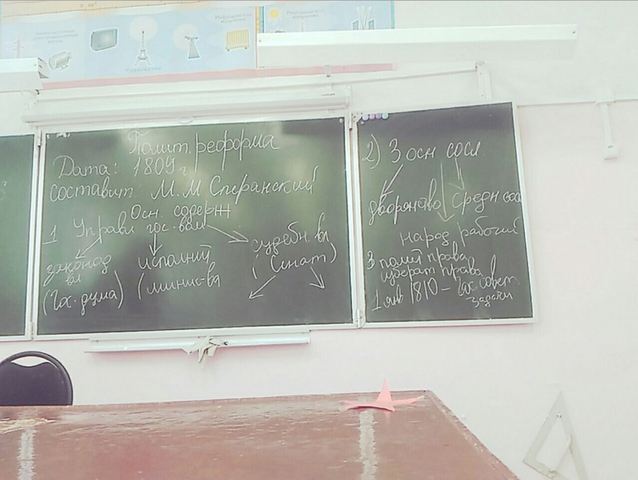 Полит. реформа
Дата: 1809 г.
составит М.М Сперанский
Осн. содерж
1 Управл гос-вом
законод испол судебн. вл
вл (минис-ва (Сенат)
(Гос. дума)
2) 3 осн сосл
дворянство Средн сос
народ рабочий
3 полит права
изберат права
1 янв 1810 - Гос совет